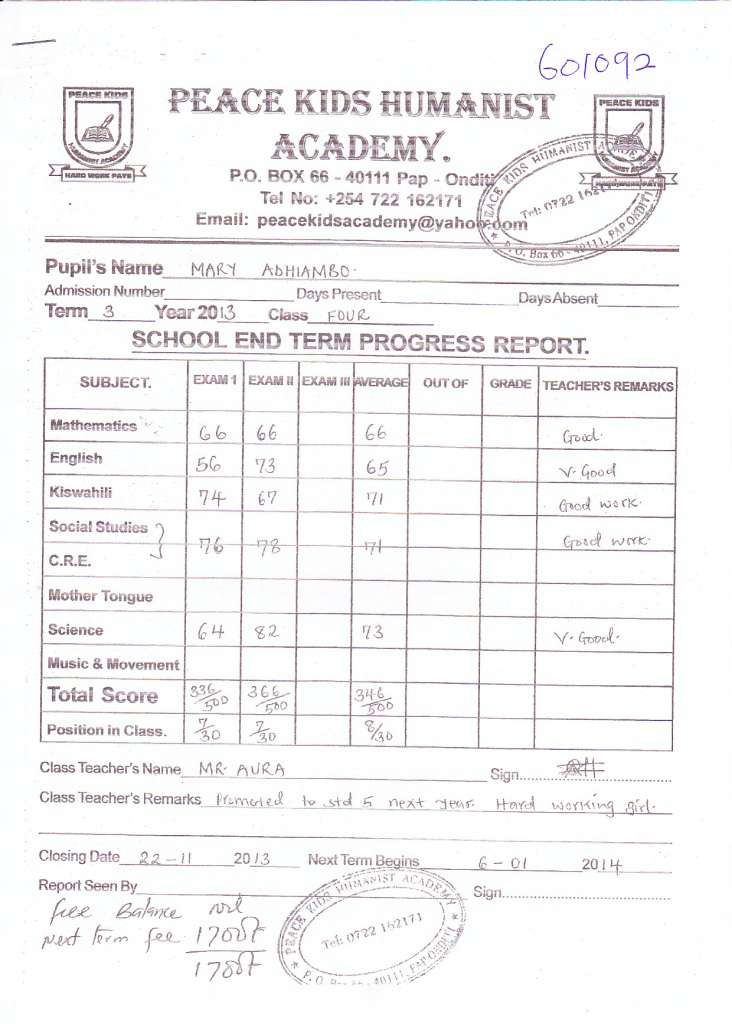 601092
PEACE KIDS
HUMANIST ACADEMY
HARD WORK PAYS
PEACE KIDS HUMANIST
ACADEMY.
PEACE KIDS
HARD WORK PAYS
P.O. BOX 66 - 40111 Pap - Onditi
Tel No: +254 722 162171
Email: peacekidsacademy@yahoo.com
PEACE KIDS HUMANIST
Tel: 0722 162171
* P. O. Box 66 - 40111, PAP ONDITI
Pupil's Name MARY ADHIAMBO.
Admission Number Days Present Days Absent
Term 3 Year 2013 Class FOUR
SCHOOL END TERM PROGRESS REPORT.
SUBJECT. EXAM 1 EXAM II EXAM III AVERAGE OUT OF GRADE TEACHER'S REMARKS
Mathematics 66 66 66 Good.
English 56 73 65 V. Good
Kiswahili 74 67 71 Good work.
Social Studies } 76 78 71 Good work.
C.R.E.
Mother Tongue
Science 64 82 73 V. Good.
Music & Movement
Total Score 336/500 366/500 346/500
Position in Class. 7/30 7/30 8/30
Class Teacher's Name MR. AURA Sign
Class Teacher's Remarks Promoted to std 5 next year. Hard working girl.
Closing Date 22-11 2013 Next Term Begins 6-01 2014
Report Seen By Sign
fee Balance nil
next term fee 1700/=
1700/=
* PEACE KIDS HUMANIST ACADEMY *
Tel: 0722 162171
P. O. 40111, PAP ONDITI